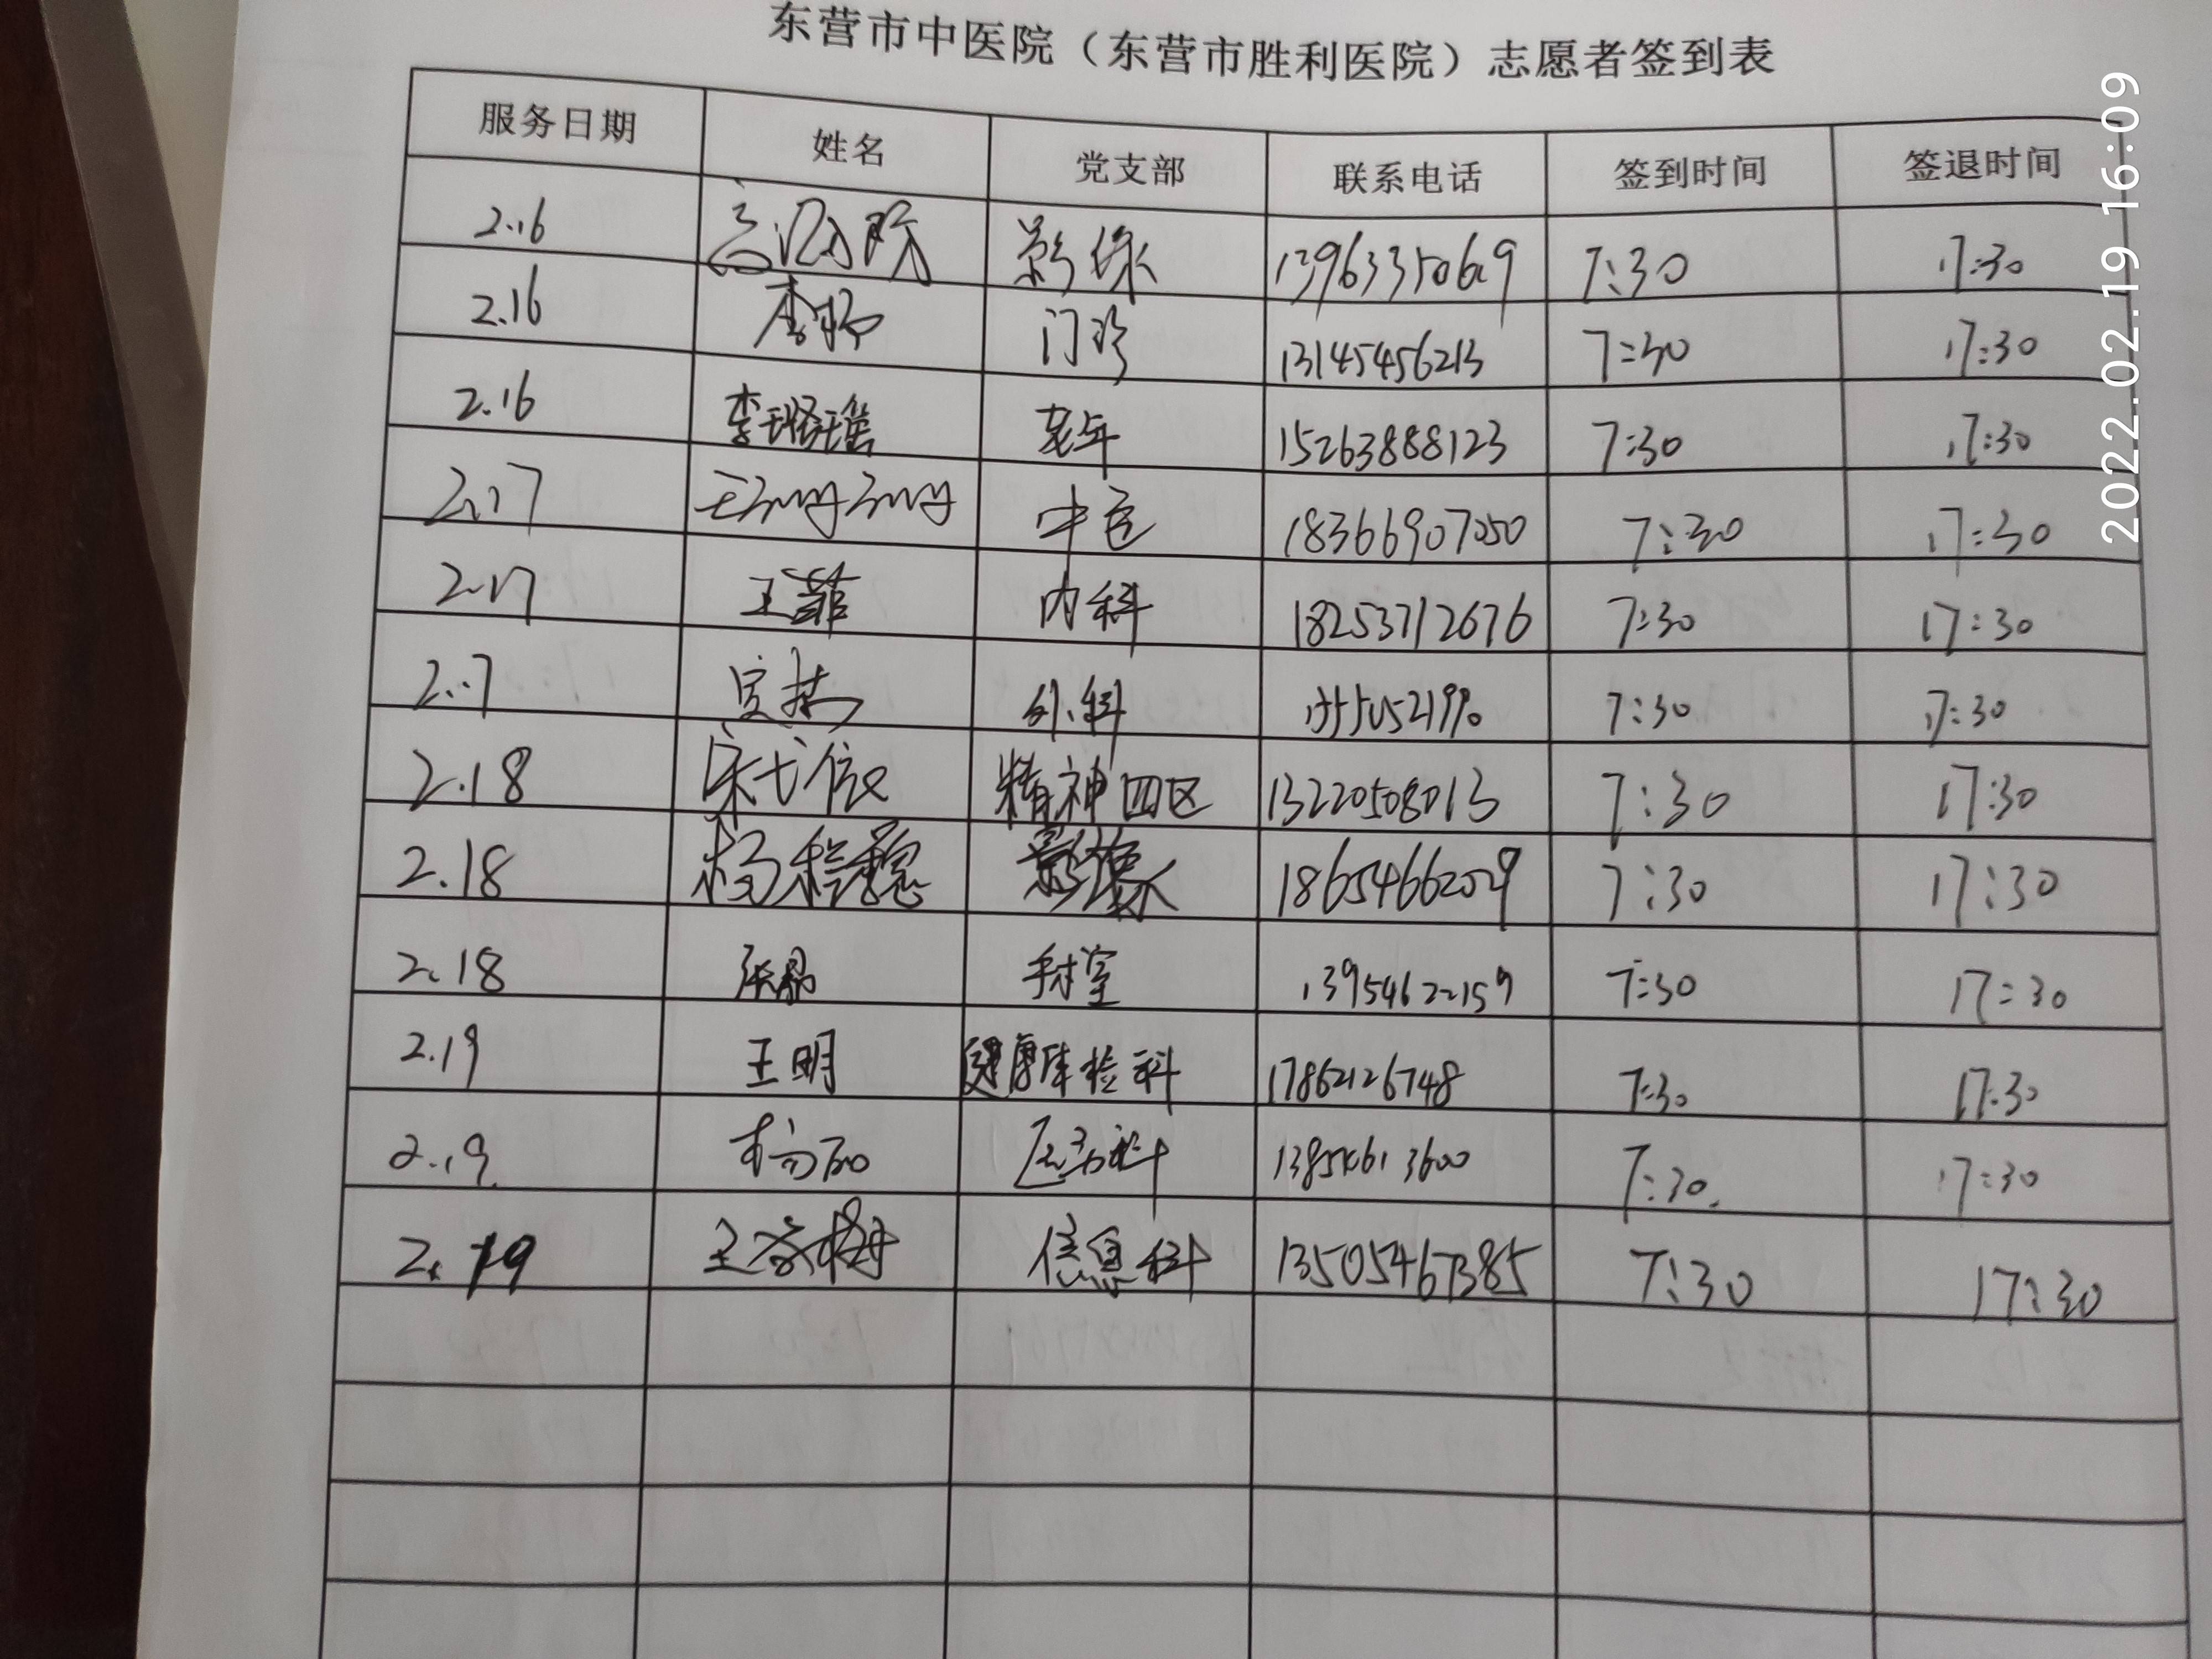 东营市中医院（东营市胜利医院）志愿者签到表
服务日期 姓名 党支部 联系电话 签到时间 签退时间
2.16 影像 13963350619 7:30 17:30
2.16 李 门诊 13145456213 7:30 17:30
2.16 李璐瑶 老年 15263888123 7:30 17:30
2.17 王婷婷 中医 18366907050 7:30 17:30
2.17 王菲 内科 18253712676 7:30 17:30
2.17 外科 7:30 17:30
2.18 宋 精神四区 13220508013 7:30 17:30
2.18 杨 影像 18654662029 7:30 17:30
2.18 张晶 手术室 13954622159 7:30 17:30
2.19 王明 健康体检科 17862126748 7:30 17:30
2.19 杨丽 医务科 13854613600 7:30 17:30
2.19 王 梅 信息科 13505467385 7:30 17:30
2022.02.19 16:09